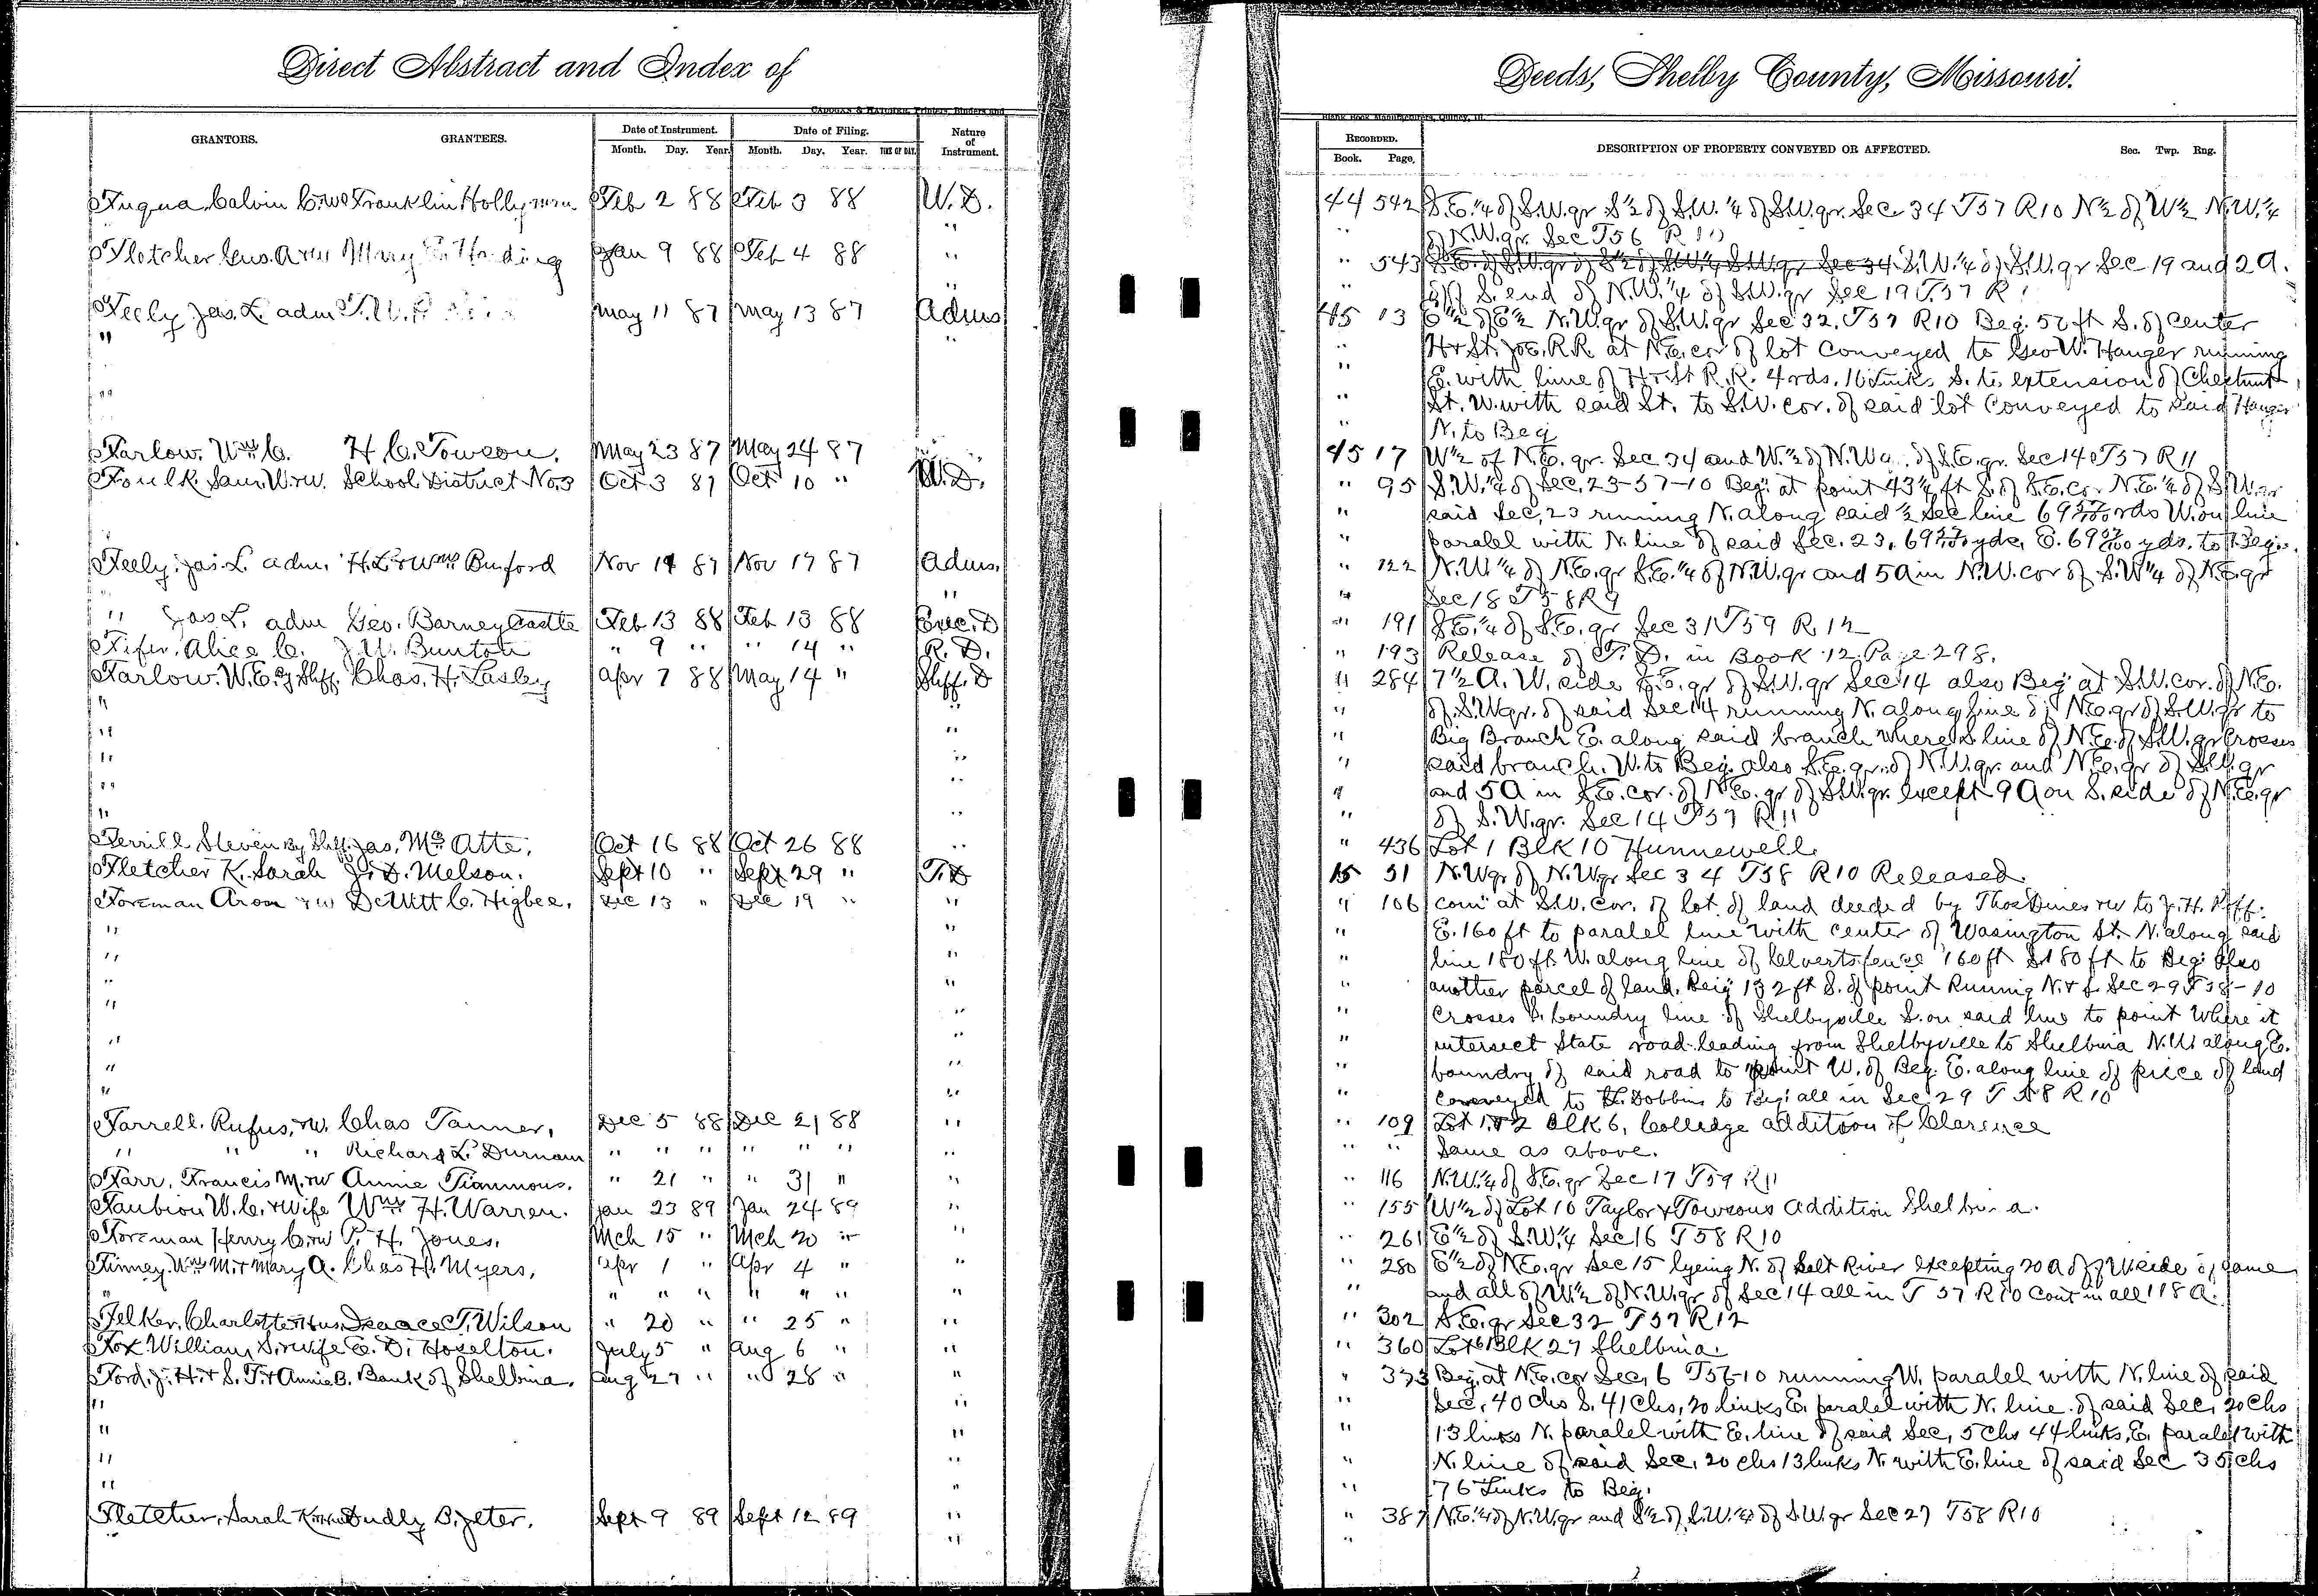 Direct Abstract and Index of
Deeds, Shelby County, Missouri.
CADOGAN & HATCHER, Printers, Binders and
Blank Book Manufacturers, Quincy, Ill.
GRANTORS. GRANTEES. Date of Instrument. Date of Filing. Nature of Instrument.
Month. Day. Year. Month. Day. Year. TIME OF DAY.
RECORDED. Book. Page. DESCRIPTION OF PROPERTY CONVEYED OR AFFECTED. Sec. Twp. Rng.
Fuqua, Calvin C. & w Franklin Hollyman Feb 2 88 Feb 3 88 W.D. 44 542 S.E. 1/4 of S.W. qr S 1/2 of S.W. 1/4 of S.W. qr. Sec 34 T57 R10 N 1/2 of W 1/2 N.W. 1/4
" " of N.W. qr. Sec T56 R10
Fletcher Geo. A & w Mary E. Harding Jan 9 88 Feb 4 88 " " 543 S.E. of S.W. qr of S 1/2 of S.W. 1/4 S.W. qr Sec 34 S.W. 1/4 of S.W. qr Sec 19 and 2 A.
" " off S. end of N.W. 1/4 of S.W. qr Sec 19 T.57 R
Feely Jas. L. adm May 11 87 May 13 87 Adms 45 13 E 1/2 of E 1/2 N.W. qr of S.W. qr Sec 32. T57 R10 Beg. 52 ft S. of center
" " " H & St. Joe. R.R. at N.E. cor of lot conveyed to Geo W. Hanger running
" E. with line of H & St R.R. 4 rds. 16 Links S. to extension of Chestnut
" " St. W. with said St. to S.W. cor. of said lot Conveyed to said Hanger
" N. to Beg
Farlow. Wm C. H. C. Towson. May 23 87 May 24 87 " 45 17 W 1/2 of N.E. qr. Sec 34 and W. 1/2 of N.W. of S.E. qr. Sec 14 T57 R11
Foulk Saml W. & w. School District No. 3 Oct 3 87 Oct 10 " W.D. " 95 S.W. 1/4 of Sec. 23-57-10 Beg. at point 43 1/4 ft S. of S.E. cor N.E. 1/4 of S.W. qr
" said Sec. 23 running N. along said 1/2 Sec line rds W. on line
" paralel with N. line of said Sec. 23, yds, E. yds. to Beg.
Feely. Jas. L. adm. H. L. & Wm Buford Nov 14 87 Nov 17 87 Adms. " 122 N.W. 1/4 of N.E. qr S.E. 1/4 of N.W. qr and 5 A in N.W. cor of S.W. 1/4 of N.E. qr
" " " Sec 18 T58 R9
" Jas L. adm Geo. Barneycastle Feb 13 88 Feb 13 88 Exec. D " 191 S.E. 1/4 of S.E. qr Sec 31 T59 R 12
Fifer. Alice C. J. W. Bunton " 9 " " 14 " R. D. " 193 Release of T. D. in Book 12. Page 298.
Farlow. W. E. By Shff. Chas. H. Lasley Apr 7 88 May 14 " Shff. D " 284 7 1/2 A. W. side S.E. qr of S.W. qr Sec 14 also Beg. at S.W. cor. of N.E.
" " " of S.W. qr. of said Sec 14 running N. along line of N.E. qr of S.W. qr to
" " " Big Branch E. along said branch where S line of N.E. of S.W. qr Crosses
" " " said branch. W. to Beg. also S.E. qr. of N.W. qr. and N.E. qr of S.W. qr
" " " and 5 A in S.E. cor. of N.E. qr of S.W. qr. except 9 A on S. side of N.E. qr
" " " of S.W. qr. Sec 14 T57 R11
Ferrill Steven By Shff. Jas. McAtte. Oct 16 88 Oct 26 88 " " 436 Lot 1 Blk 10 Hunnewell
Fletcher K. Sarah J. D. Melson. Sept 10 " Sept 29 " T.D 15 51 N.W. qr of N.W. qr Sec 34 T58 R10 Released.
Foreman Aron & w DeWitt C. Higbee. Dec 13 " Dec 19 " " " 106 com at S.W. cor. of lot of land deeded by Thos Dines & w to J. H.
" " " E. 160 ft to paralel line with center of Wasington St. N. along said
" " " line 180 ft. W. along line of Calverts fence 160 ft S. 180 ft to Beg. Also
" " " another parcel of land. Beig 132 ft S. of point Running N. & S. Sec 29 T58-10
" " " Crosses S. boundry line of Shelbyville S. on said line to point Where it
" " " intersect State road leading from Shelbyville to Shelbina N.W. along E.
" " " boundry of said road to point W. of Beg. E. along line of piece of land
" " " conveyed to Dobbins to Beg. all in Sec 29 T 58 R 10
Farrell. Rufus, & w. Chas Tanner, Dec 5 88 Dec 21 88 " " 109 Lot 1 & 2 Blk 6, Colledge addition of Clarence
" " " Richard L. Durham " " " " " " " " " Same as above.
Farr. Francis M. & w Annie Timmons. " 21 " " 31 " " " 116 N.W. 1/4 of S.E. qr Sec 17 T59 R11
Faubion W. C. & Wife Wm H. Warren. Jan 23 89 Jan 24 89 " " 155 W 1/2 of Lot 10 Taylor & Towsons Addition Shelbina.
Foreman Henry C. & w P. H. Jones. Mch 15 " Mch 20 " " " 261 E 1/2 of S.W. 1/4 Sec 16 T58 R10
Finney. Wm M. & Mary A. Chas H. Myers, Apr 1 " Apr 4 " " " 280 E 1/2 of N.E. qr Sec 15 lyeing N. of Salt River excepting 20 A off W side of same
" " " " " " " " " and all of W 1/2 of N.W. qr of Sec 14 all in T 57 R 10 Cont in all 118 A.
Felker. Charlotte & Hus. Isaace T. Wilson " 20 " " 25 " " " 302 S.E. qr Sec 32 T57 R12
Fox William S. & wife E. D. Hoselton. July 5 " Aug 6 " " " 360 Lot 6 Blk 27 Shelbina.
Ford. J. H. & S. T. & Annie B. Bank of Shelbina. Aug 27 " " 28 " " " 373 Beg. at N.E. cor Sec. 6 T56-10 running W. paralel with N. line of said
" " " Sec. 40 Chs S. 41 Chs, 20 links E. paralel with N. line of said Sec. 20 Chs
" " " 13 links N. paralel with E. line of said Sec, 5 Chs 44 links, E. paralel with
" " " N. line of said Sec. 20 chs 13 links N. with E. line of said Sec 35 chs
" " " 76 Links to Beg.
Fletcher, Sarah K. & Hus Dudly B. Jeter. Sept 9 89 Sept 12 89 " " 387 N.E. 1/4 of N.W. qr and S 1/2 of S.W. 1/4 of S.W. qr Sec 27 T58 R10
" "